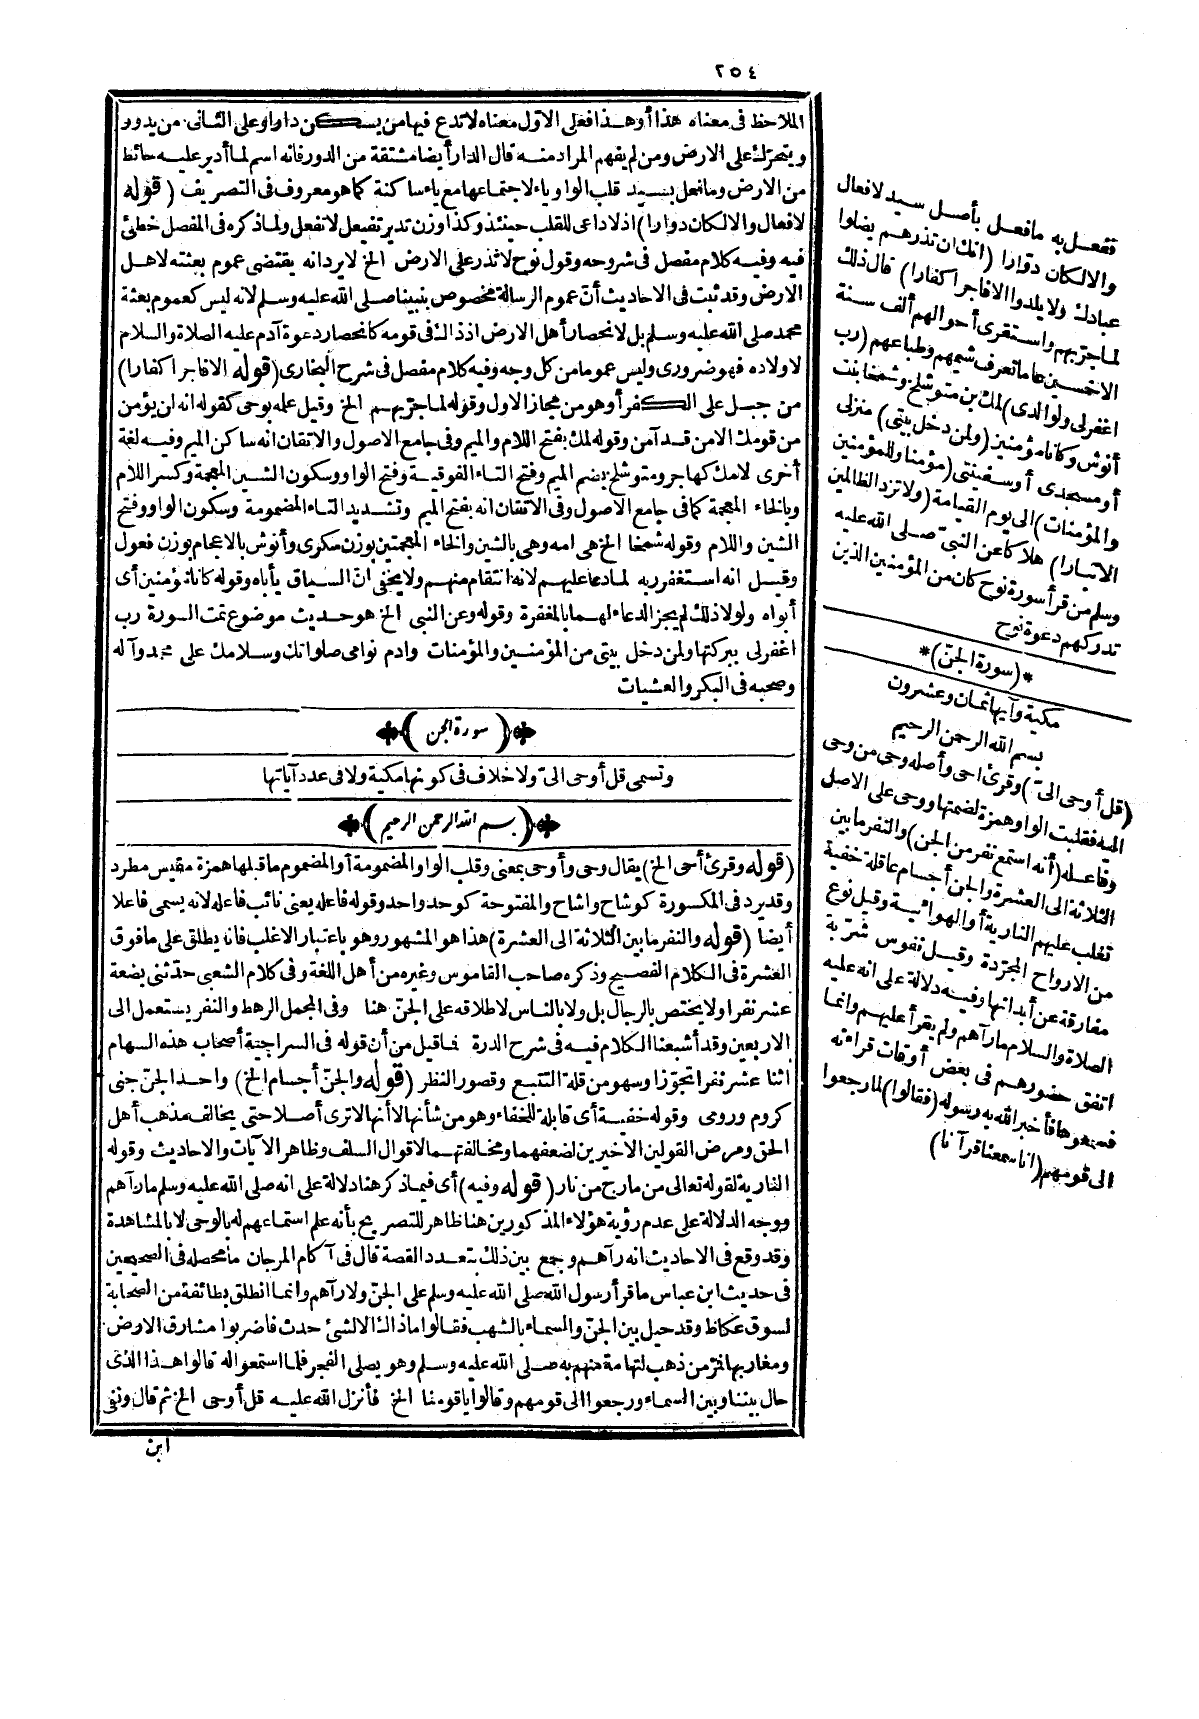 ٢٥٤
الملاحظ فى معناه هذا أو هذا فعلى الاوّل معناه لا تدع فيها من يسكن دارا وعلى الثانى من يدور
ويتحرّك على الارض ومن لم يفهم المراد منه قال الدار أيضا مشتقة من الدور فانه اسم لما أدير عليه حائط
من الارض وما فعل بسيد قلب الواو ياء لاجتماعها مع ياء ساكنة كما هو معروف فى التصريف (قوله
لا فعال والا لكان دوّارا) اذ لا داعى للقلب حينئذ وكذا وزن تدير تفيعل لا تفعل ولما ذكره فى المفصل خطئ
فيه وفيه كلام مفصل فى شروحه وقول نوح لا تذر على الارض الخ لا يرد انه يقتضى عموم بعثته لاهل
الارض وقد ثبت فى الاحاديث أنّ عموم الرسالة مخصوص بنبينا صلى الله عليه وسلم لانه ليس كعموم بعثة
محمد صلى الله عليه وسلم بل لانحصار أهل الارض اذ ذاك فى قومه كانحصار دعوة آدم عليه الصلاة والسلام
لاولاده فهو ضرورى وليس عموما من كل وجه وفيه كلام مفصل فى شرح البخارى (قوله الا فاجرا كفارا)
من جبل على الكفر أو هو من مجاز الاول وقوله لما جرّبهم الخ وقيل علمه بوحى كقوله انه لن يؤمن
من قومك الا من قد آمن وقوله لمك بفتح اللام والميم وفى جامع الاصول والاتقان انه ساكن الميم وفيه لغة
أخرى لامك كهاجر ومتوشلخ بضم الميم وفتح التاء الفوقية وفتح الواو وسكون الشين المعجمة وكسر اللام
وبالخاء المعجمة كما فى جامع الاصول وفى الاتقان انه بفتح الميم وتشديد التاء المضمومة وسكون الواو وفتح
الشين واللام وقوله شمخا الخ هى امه وهى بالشين والخاء المعجمتين بوزن سكرى وأنوش بالاعجام بوزن فعول
وقيل انه استغفر ربه لما دعا عليهم لانه انتقام منهم ولا يخفى انّ السياق يأباه وقوله كانا مؤمنين أى
أبواه ولولا ذلك لم يجز الدعاء لهما بالمغفرة وقوله وعن النبى الخ هو حديث موضوع تمت السورة رب
اغفر لى ببركتها ولمن دخل بيتى من المؤمنين والمؤمنات وادم نوامى صلواتك وسلامك على محمد وآله
وصحبه فى البكر والعشيات
(سورة الجن)
وتسمى قل أوحى الىّ ولا خلاف فى كونها مكية ولا فى عدد آياتها
(بسم الله الرحمن الرحيم)
(قوله وقرئ أحى الخ) يقال وحى وأوحى بمعنى وقلب الواو المضمومة أو المضموم ما قبلها همزة مقيس مطرد
وقد يرد فى المكسورة كوشاح واشاح والمفتوحة كوحد واحد وقوله فاعله يعنى نائب فاعله لانه يسمى فاعلا
أيضا (قوله والنفر ما بين الثلاثة الى العشرة) هذا هو المشهور وهو باعتبار الاغلب فانه يطلق على ما فوق
العشرة فى الكلام الفصيح وذكره صاحب القاموس وغيره من أهل اللغة وفى كلام الشعبى حدّثنى بضعة
عشر نفرا ولا يختص بالرجال بل ولا بالناس لاطلاقه على الجنّ هنا وفى المجمل الرهط والنفر يستعمل الى
الاربعين وقد أشبعنا الكلام فيه فى شرح الدرة فما قيل من أن قوله فى السراجية أصحاب هذه السهام
اثنا عشر نفرا تجوّزا وسهو من قلة التتبع وقصور النظر (قوله والجنّ أجسام الخ) واحد الجنّ جنى
كروم ورومى وقوله خفية أى قابلة للخفاء وهو من شأنها لا أنها لا ترى أصلا حتى يخالف مذهب أهل
الحق ومرض القولين الاخيرين لضعفهما ومخالفتهما لاقوال السلف وظاهر الآيات والاحاديث وقوله
النارية لقوله تعالى من مارج من نار (قوله وفيه) أى فيما ذكر هنا دلالة على انه صلى الله عليه وسلم ما رآهم
ووجه الدلالة على عدم رؤية هؤلاء المذكورين هنا ظاهر للتصريح بأنه علم استماعهم له بالوحى لا بالمشاهدة
وقد وقع فى الاحاديث انه رآهم وجمع بين ذلك بتعدد القصة قال فى آكام المرجان ما محصله فى الصحيحين
فى حديث ابن عباس ما قرأ رسول الله صلى الله عليه وسلم على الجنّ ولا رآهم وانما انطلق بطائفة من الصحابة
لسوق عكاظ وقد حيل بين الجنّ والسماء بالشهب فقالوا ما ذاك الا لشئ حدث فاضربوا مشارق الارض
ومغاربها فمرّ من ذهب لتهامة منهم به صلى الله عليه وسلم وهو يصلى الفجر فلما استمعوا له قالوا هذا الذى
حال بيننا وبين السماء ورجعوا الى قومهم وقالوا يا قومنا الخ فأنزل الله عليه قل أوحى الخ ثم قال ونفى
ابن
ففعل به ما فعل بأصل سيد لا فعال
والا لكان دوّارا (انك ان تذرهم يضلوا
عبادك ولا يلدوا الا فاجرا كفارا) قال ذلك
لما جرّبهم واستقرى أحوالهم ألف سنة
الا خمسين عاما فعرف شيمهم وطباعهم (رب
اغفر لى ولوالدى) لمك بن متوشلخ وشمخا بنت
أنوش وكانا مؤمنين (ولمن دخل بيتى) منزلى
أو مسجدى أو سفينتى (مؤمنا وللمؤمنين
والمؤمنات) الى يوم القيامة (ولا تزد الظالمين
الا تبارا) هلاكا عن النبىّ صلى الله عليه
وسلم من قرأ سورة نوح كان من المؤمنين الذين
تدركهم دعوة نوح
*(سورة الجنّ)*
مكية وآيها ثمان وعشرون
بسم الله الرحمن الرحيم
(قل أوحى الىّ) وقرئ احى وأصله وحى من وحى
اليه فقلبت الواو همزة لضمتها ووحى على الاصل
وفاعله (أنه استمع نفر من الجن) والنفر ما بين
الثلاثة الى العشرة والجن أجسام عاقلة خفية
تغلب عليهم النارية أو الهوائية وقيل نوع
من الارواح المجرّدة وقيل نفوس بشرية
مفارقة عن أبدانها وفيه دلالة على انه عليه
الصلاة والسلام ما رآهم ولم يقرأ عليهم وانما
اتفق حضورهم فى بعض أوقات قراءته
فسمعوها فأخبر الله به رسوله (فقالوا) لما رجعوا
الى قومهم (انا سمعنا قرآنا)